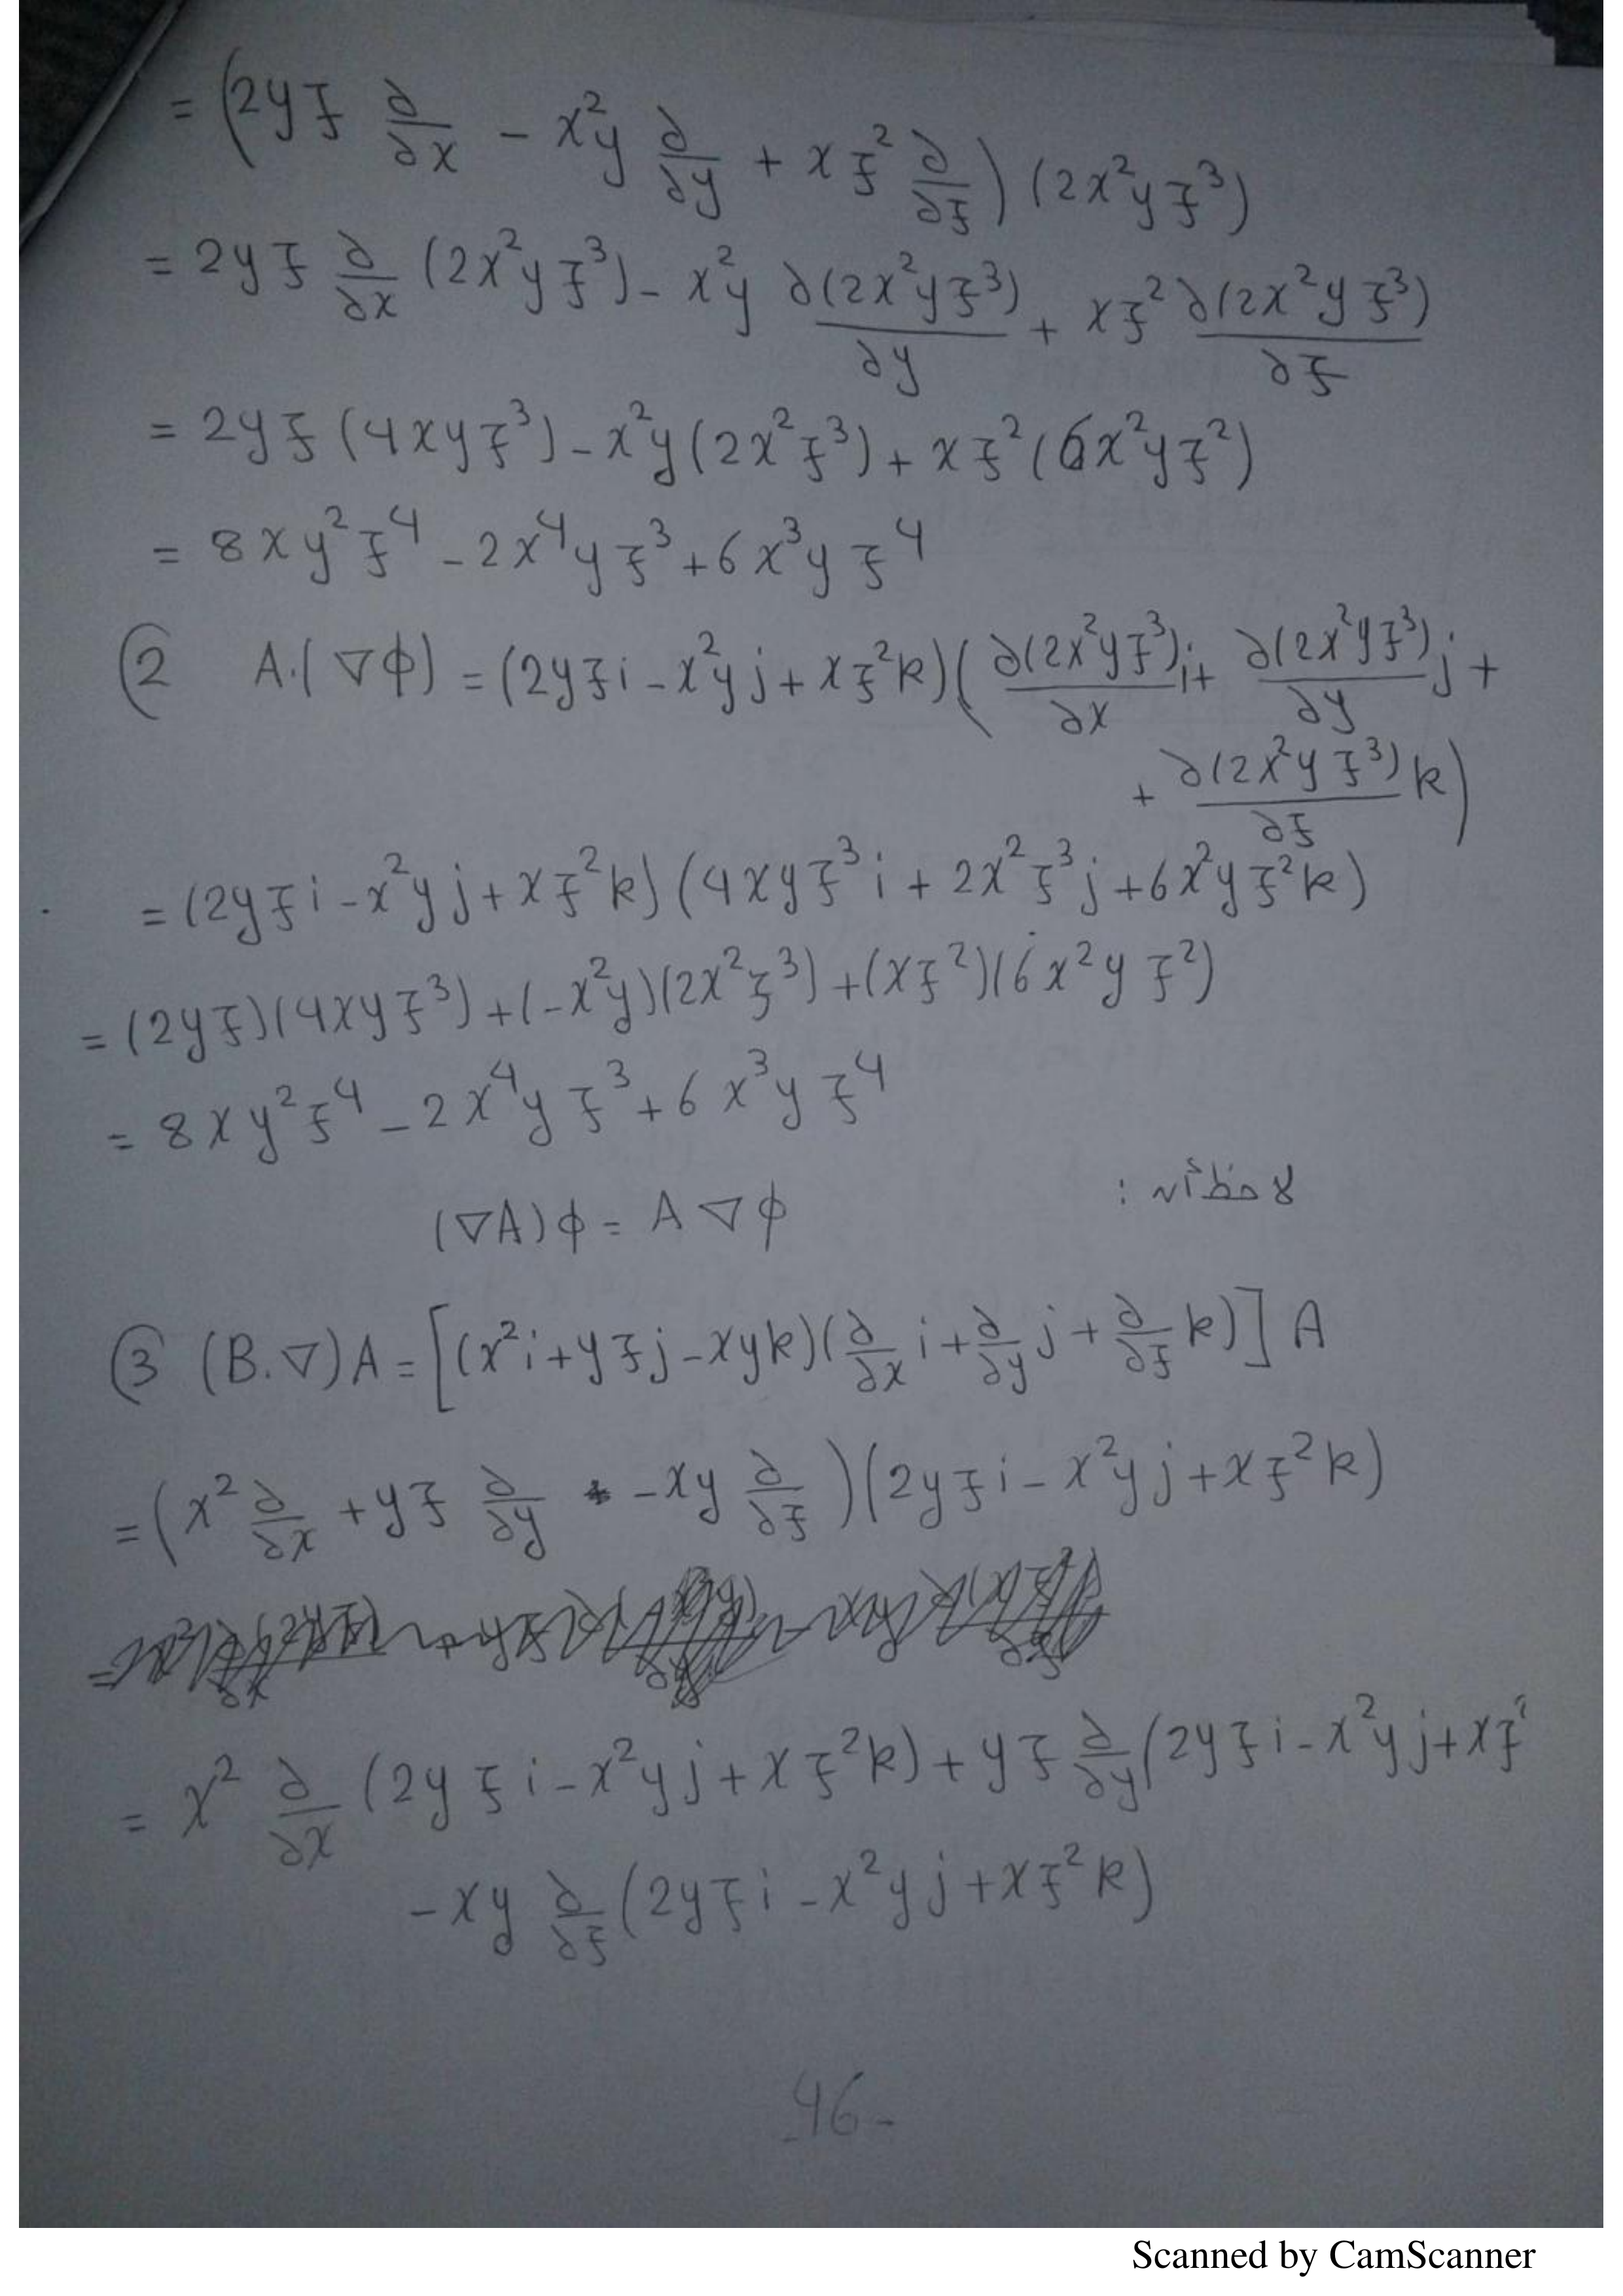 = (2yz ∂/∂x - x²y ∂/∂y + xz² ∂/∂z) (2x²yz³)
= 2yz ∂/∂x (2x²yz³) - x²y ∂(2x²yz³)/∂y + xz² ∂(2x²yz³)/∂z
= 2yz (4xyz³) - x²y (2x²z³) + xz² (6x²yz²)
= 8xy²z⁴ - 2x⁴yz³ + 6x³yz⁴
② A.(∇ϕ) = (2yzi - x²yj + xz²k)(∂(2x²yz³)/∂x i + ∂(2x²yz³)/∂y j +
+ ∂(2x²yz³)/∂z k)
= (2yzi - x²yj + xz²k) (4xyz³i + 2x²z³j + 6x²yz²k)
= (2yz)(4xyz³) + (-x²y)(2x²z³) + (xz²)(6x²yz²)
= 8xy²z⁴ - 2x⁴yz³ + 6x³yz⁴
لاحظ أن :
(∇A)ϕ = A∇ϕ
③ (B.∇)A = [(x²i + yzj - xyk)(∂/∂x i + ∂/∂y j + ∂/∂z k)] A
= (x² ∂/∂x + yz ∂/∂y - xy ∂/∂z) (2yzi - x²yj + xz²k)
= x² ∂/∂x (2yzi - x²yj + xz²k) + yz ∂/∂y (2yzi - x²yj + xz²
- xy ∂/∂z (2yzi - x²yj + xz²k)
-46-
Scanned by CamScanner